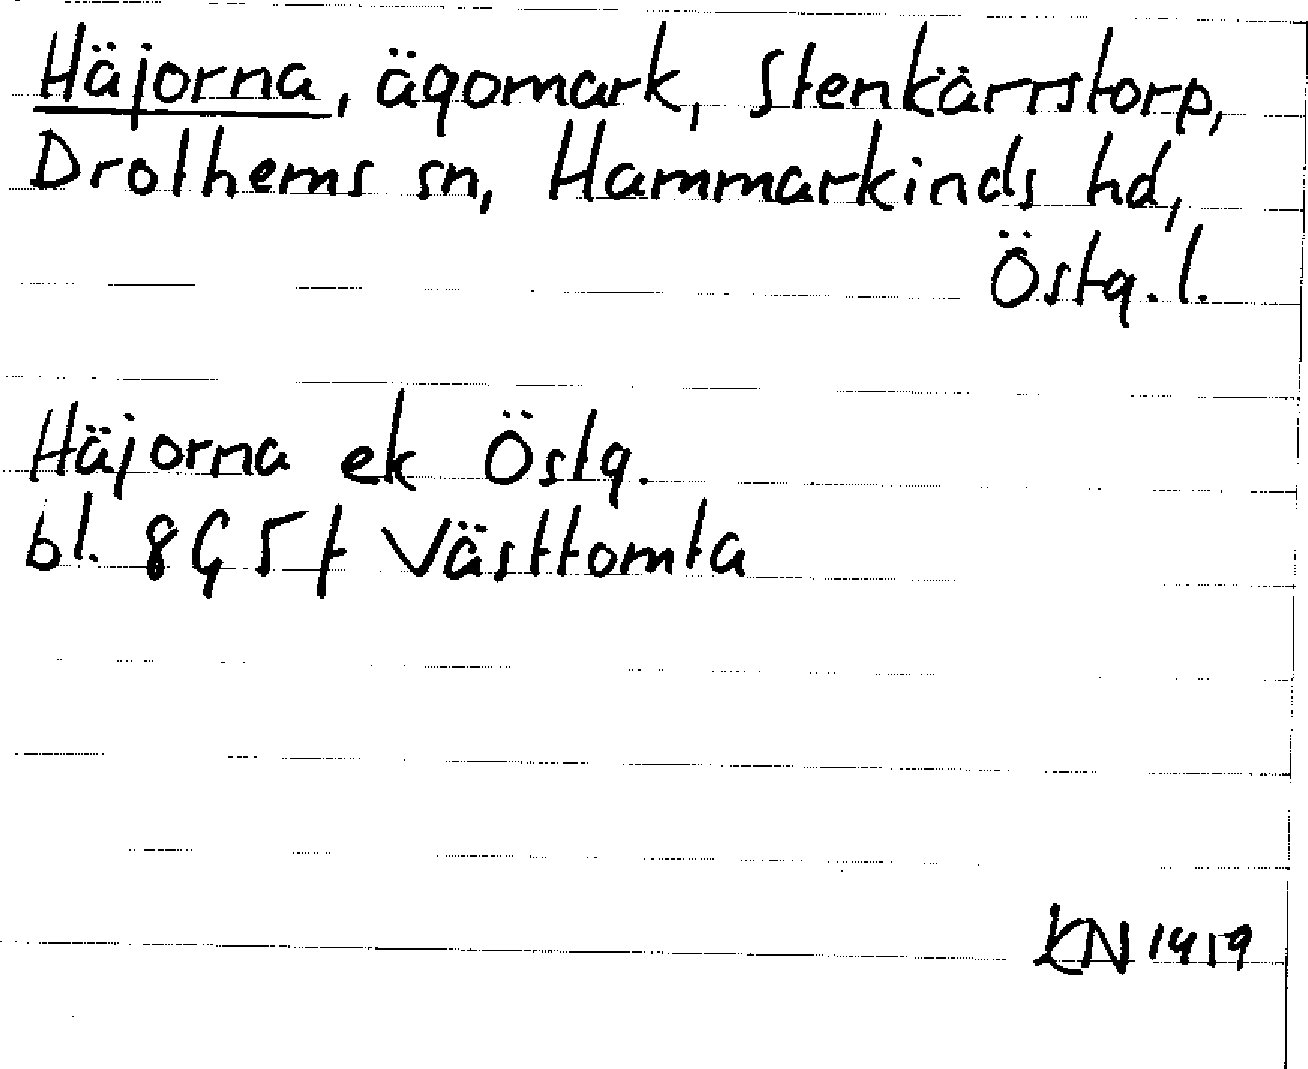 Häjorna, ägomark, Stenkärrstorp,
Drothems sn, Hammarkinds hd,
Östg. l.
Häjorna ek Östg.
bl. 8G 5f Västtomta
KN 1979